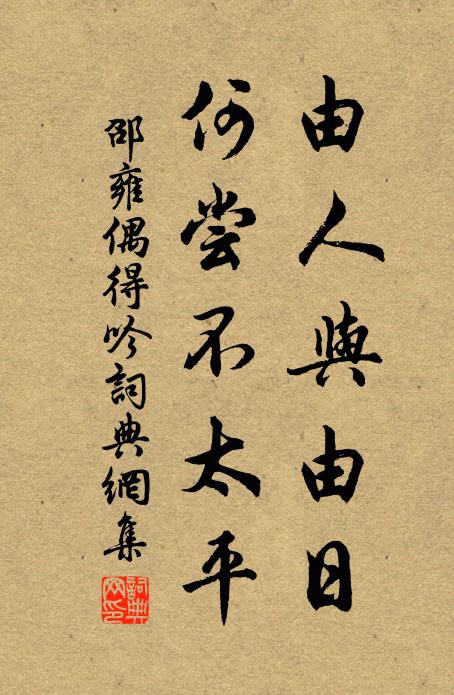 由人與由日
何嘗不太平
邵雍偶得吟詞典網集
詞典
网印